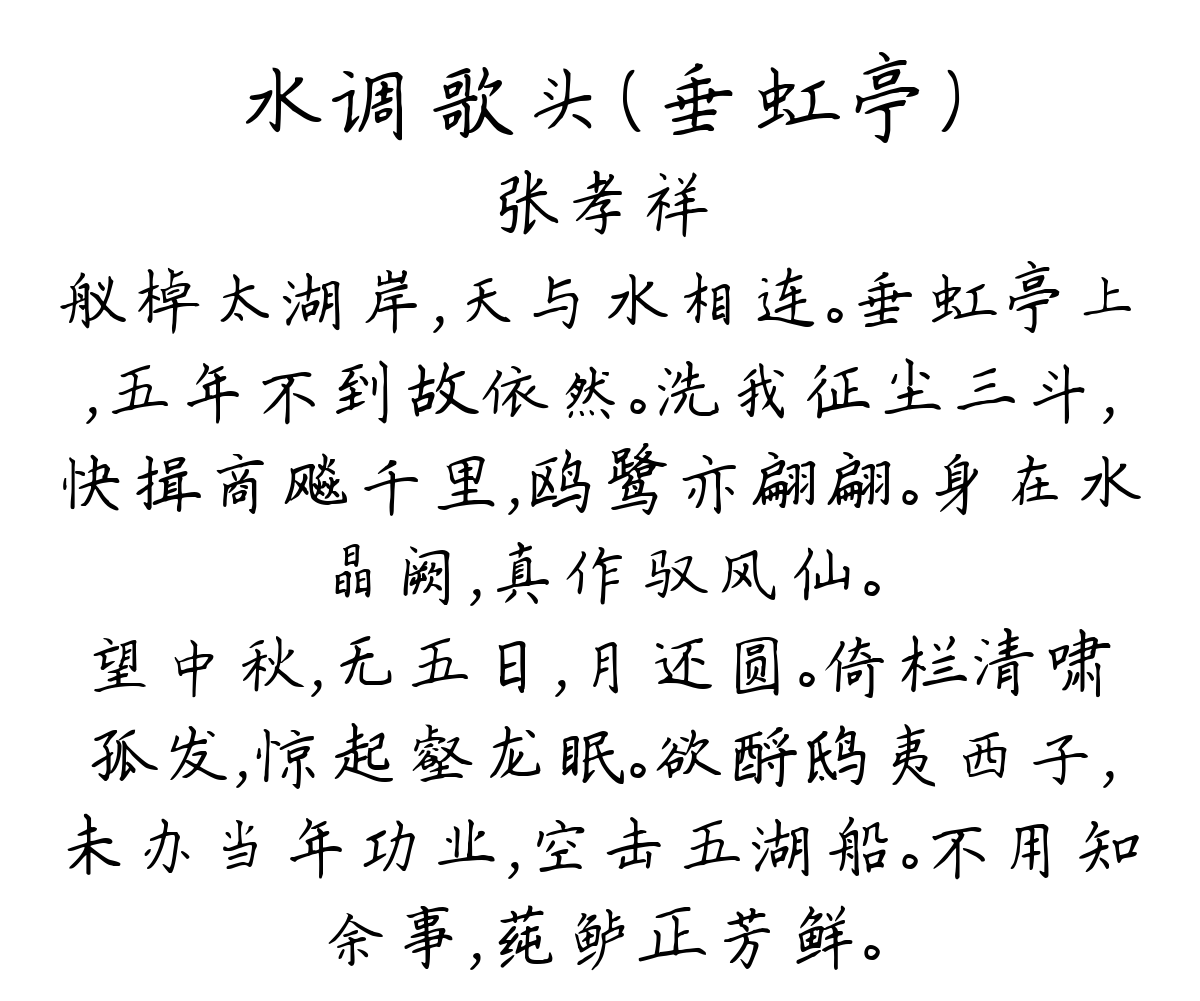 水调歌头(垂虹亭)
张孝祥
舣棹太湖岸,天与水相连。垂虹亭上
,五年不到故依然。洗我征尘三斗,
快揖商飚千里,鸥鹭亦翩翩。身在水
晶阙,真作驭风仙。
望中秋,无五日,月还圆。倚栏清啸
孤发,惊起壑龙眠。欲酹鸱夷西子,
未办当年功业,空击五湖船。不用知
余事,莼鲈正芳鲜。